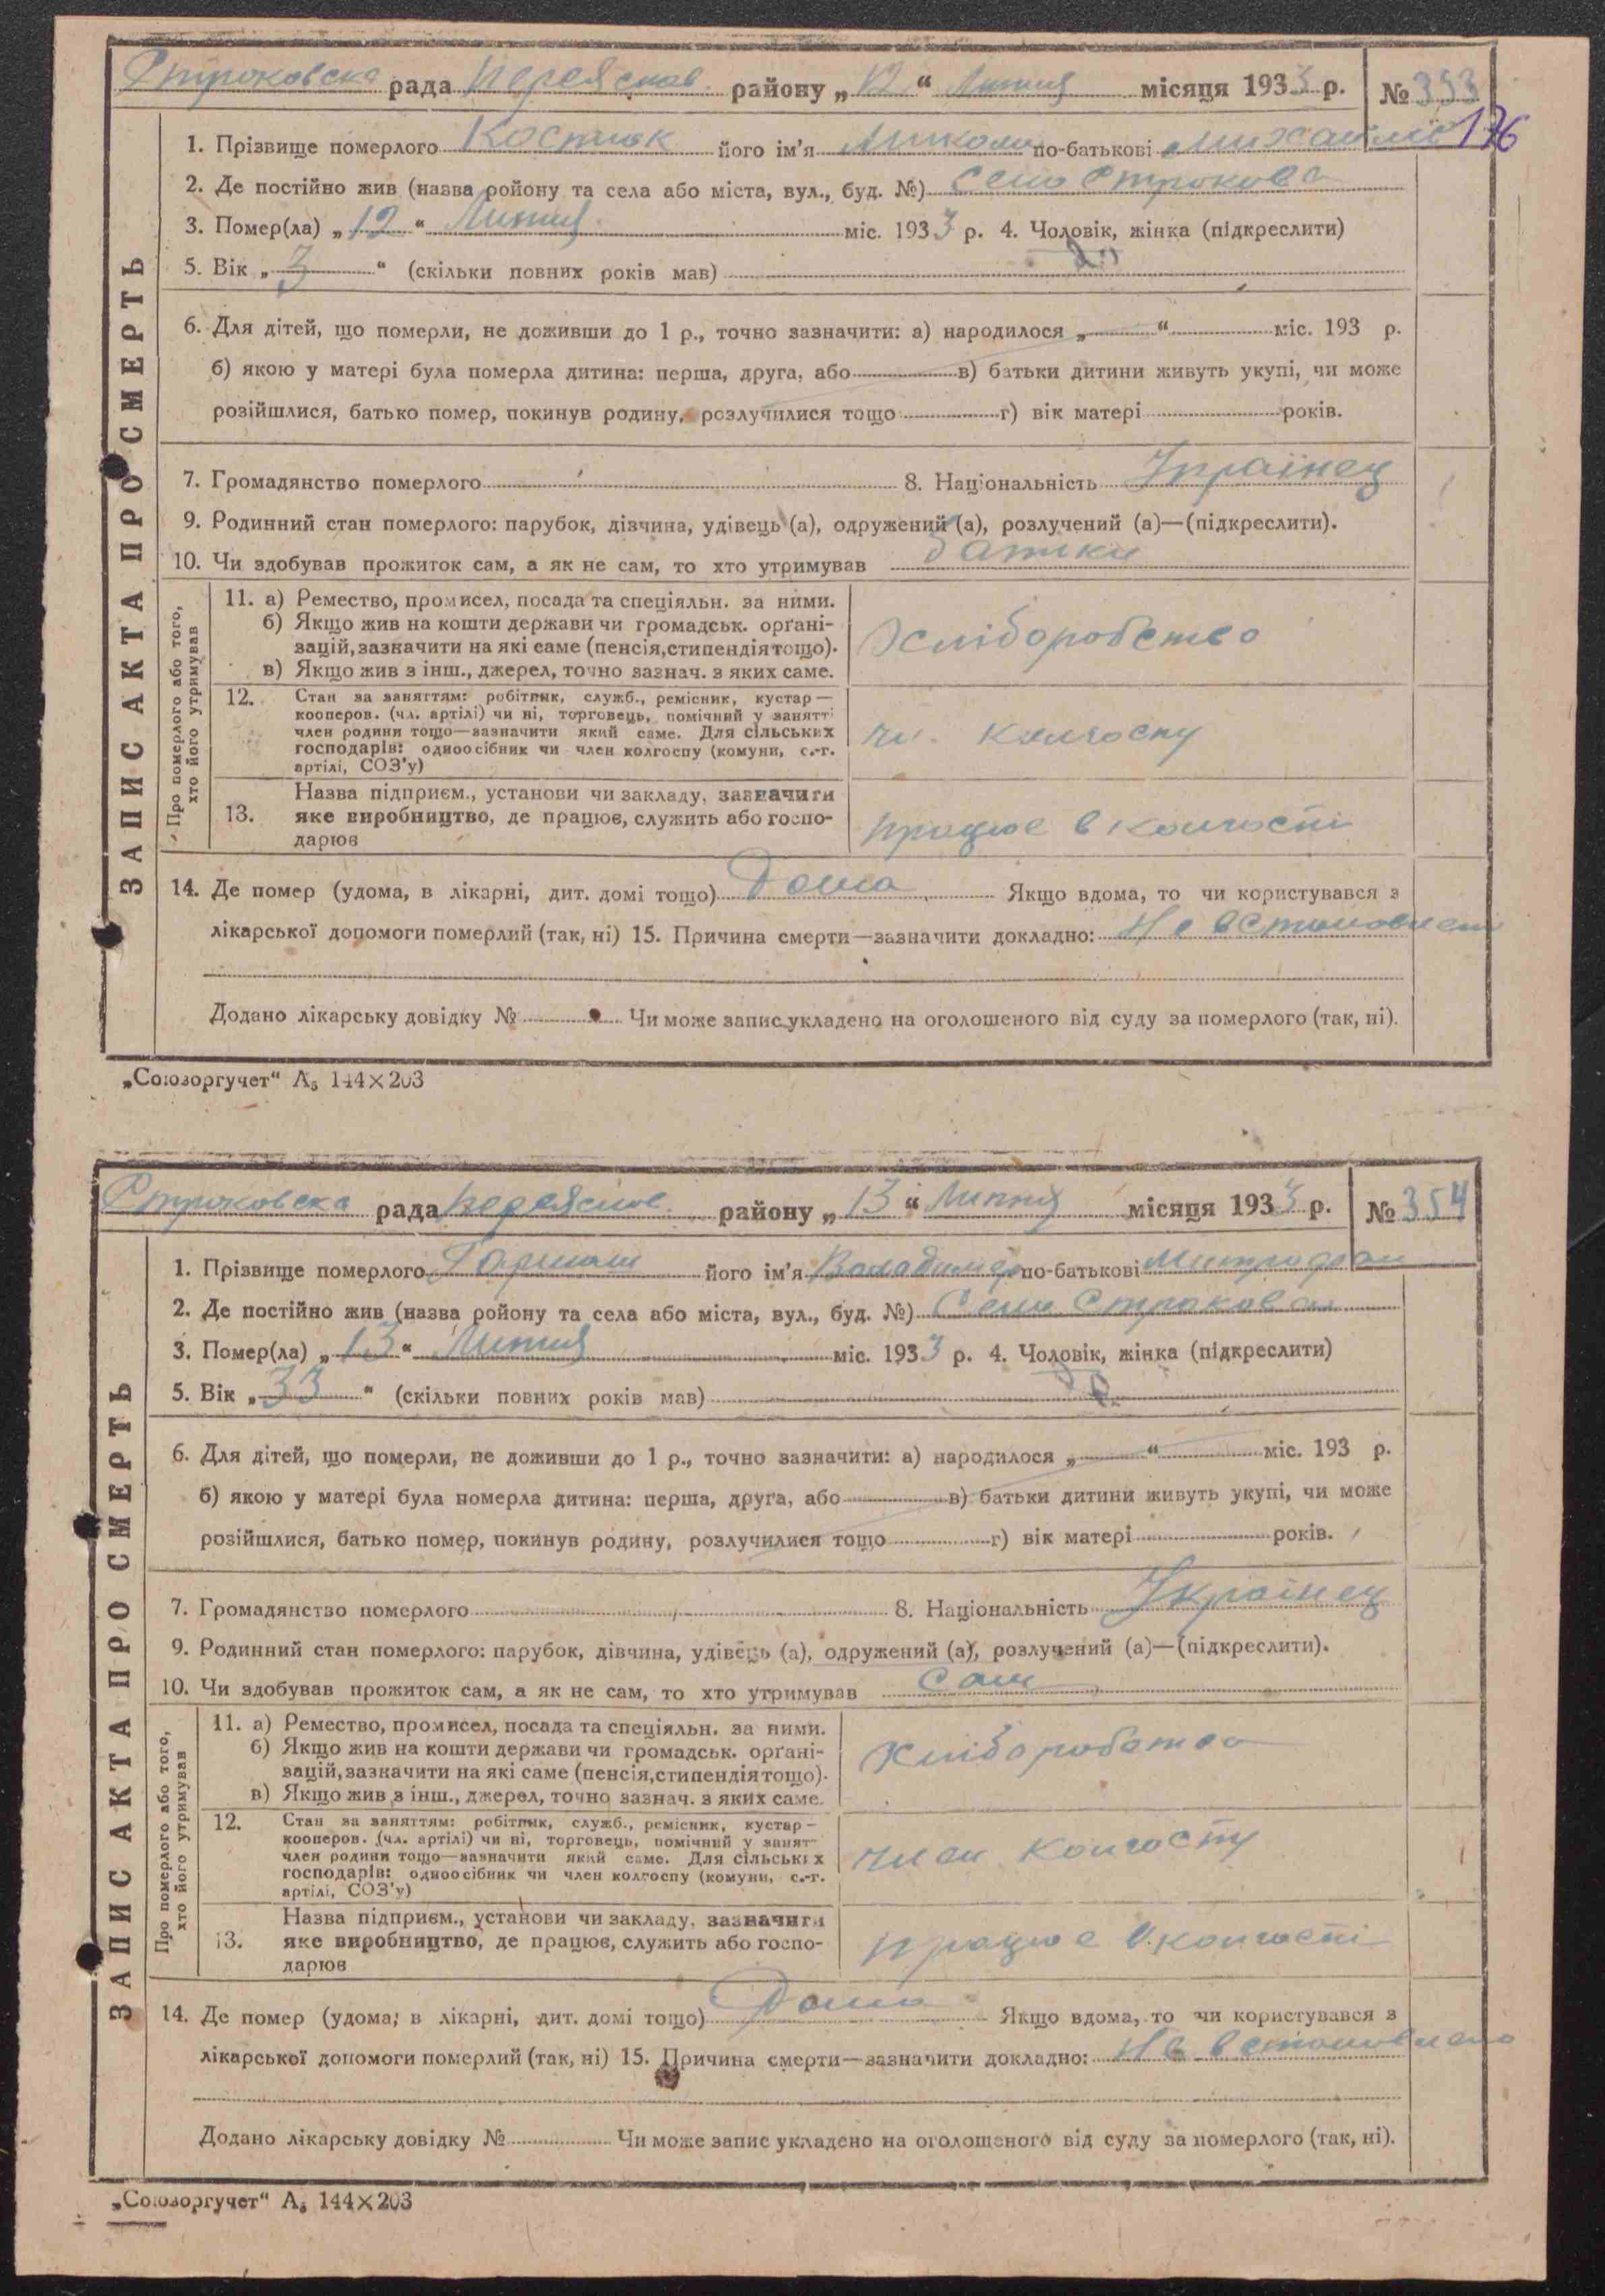 Строковска рада Переяслав району „12“ Липня місяця 1933 р. № 353
176
1. Прізвище померлого Костюк його ім'я Микола по-батькові Михайлів
2. Де постійно жив (назва ройону та села або міста, вул., буд. №) село Строкова
3. Помер(ла) „12“ Липня міс. 1933 р. 4. Чоловік, жінка (підкреслити)
5. Вік „3“ (скільки повних років мав)
6. Для дітей, що померли, не доживши до 1 р., точно зазначити: а) народилося „ “ міс. 193 р.
б) якою у матері була померла дитина: перша, друга, або в) батьки дитини живуть укупі, чи може
розійшлися, батько помер, покинув родину, розлучилися тощо г) вік матері років.
7. Громадянство померлого 8. Національність Українец
9. Родинний стан померлого: парубок, дівчина, удівець (а), одружений (а), розлучений (а)—(підкреслити).
10. Чи здобував прожиток сам, а як не сам, то хто утримував батьки
ЗАПИС АКТА ПРО СМЕРТЬ
Про померлого або того,
хто його утримував
11. а) Ремество, промисел, посада та спеціяльн. за ними.
б) Якщо жив на кошти держави чи громадськ. орґані-
зацій, зазначити на які саме (пенсія, стипендія тощо).
в) Якщо жив з інш., джерел, точно зазнач. з яких саме.
Хліборобство
12. Стан за заняттям: робітник, служб., ремісник, кустар —
кооперов. (чл. артілі) чи ні, торговець, помічний у занятті
член родини тощо—зазначити який саме. Для сільських
господарів: одноосібник чи член колгоспу (комуни, с.-г.
артілі, СОЗ'у)
чл. колгоспу
13. Назва підприєм., установи чи закладу, зазначити
яке виробництво, де працює, служить або госпо-
дарює
працює в колгоспі
14. Де помер (удома, в лікарні, дит. домі тощо) Дома Якщо вдома, то чи користувався з
лікарської допомоги померлий (так, ні) 15. Причина смерти—зазначити докладно: Не встановлено
Додано лікарську довідку № Чи може запис укладено на оголошеного від суду за померлого (так, ні).
„Союзоргучет“ А₅ 144×203
Строковска рада Переяслав району „13“ Липня місяця 1933 р. № 354
1. Прізвище померлого його ім'я Володимер по-батькові Митрофан
2. Де постійно жив (назва ройону та села або міста, вул., буд. №) Село Строкова
3. Помер(ла) „13“ Липня міс. 1933 р. 4. Чоловік, жінка (підкреслити)
5. Вік „33“ (скільки повних років мав)
6. Для дітей, що померли, не доживши до 1 р., точно зазначити: а) народилося „ “ міс. 193 р.
б) якою у матері була померла дитина: перша, друга, або в) батьки дитини живуть укупі, чи може
розійшлися, батько помер, покинув родину, розлучилися тощо г) вік матері років.
7. Громадянство померлого 8. Національність Українец
9. Родинний стан померлого: парубок, дівчина, удівець (а), одружений (а), розлучений (а)—(підкреслити).
10. Чи здобував прожиток сам, а як не сам, то хто утримував Сам
ЗАПИС АКТА ПРО СМЕРТЬ
Про померлого або того,
хто його утримував
11. а) Ремество, промисел, посада та спеціяльн. за ними.
б) Якщо жив на кошти держави чи громадськ. орґані-
зацій, зазначити на які саме (пенсія, стипендія тощо).
в) Якщо жив з інш., джерел, точно зазнач. з яких саме.
Хліборобство
12. Стан за заняттям: робітник, служб., ремісник, кустар —
кооперов. (чл. артілі) чи ні, торговець, помічний у занят
член родини тощо—зазначити який саме. Для сільських
господарів: одноосібник чи член колгоспу (комуни, с.-г.
артілі, СОЗ'у)
член колгоспу
13. Назва підприєм., установи чи закладу, зазначити
яке виробництво, де працює, служить або госпо-
дарює
працює в колгоспі
14. Де помер (удома, в лікарні, дит. домі тощо) Дома Якщо вдома, то чи користувався з
лікарської допомоги померлий (так, ні) 15. Причина смерти—зазначити докладно: Не встановлено
Додано лікарську довідку № Чи може запис укладено на оголошеного від суду за померлого (так, ні).
„Союзоргучет“ А₅ 144×203